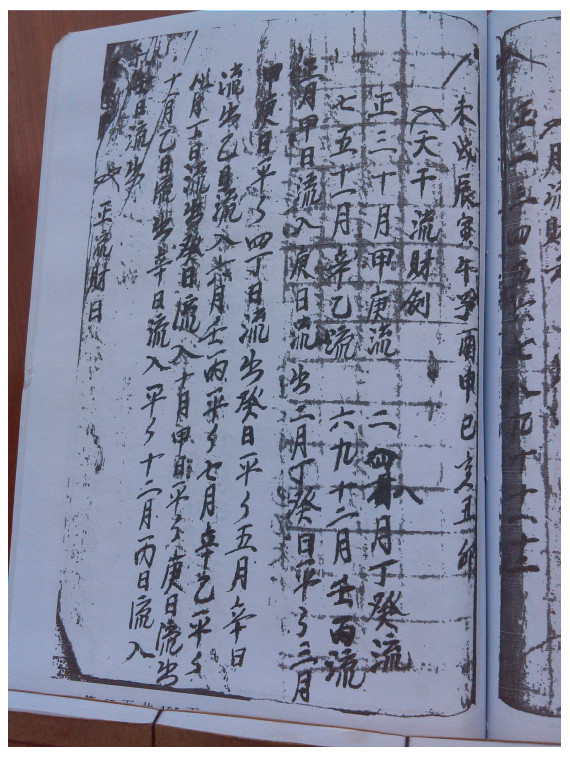 月流財
正二三四五六七八九十十一十二
未戌辰寅午子酉申巳亥丑卯
天干流財例
正三十月甲庚流 二四八月丁癸流
七五十一月辛乙流 六九十二月壬丙流
正月甲日流入庚日流出二月丁癸日平平三月
甲庚日平平四丁日流出癸日平平五月辛日
流出乙日流入六月壬丙平平七月辛乙平平
八月丁日流出癸日流入十月甲日平平庚日流出
十一月乙日流出辛日流入平平十二月丙日流入
壬日流出
正流財日